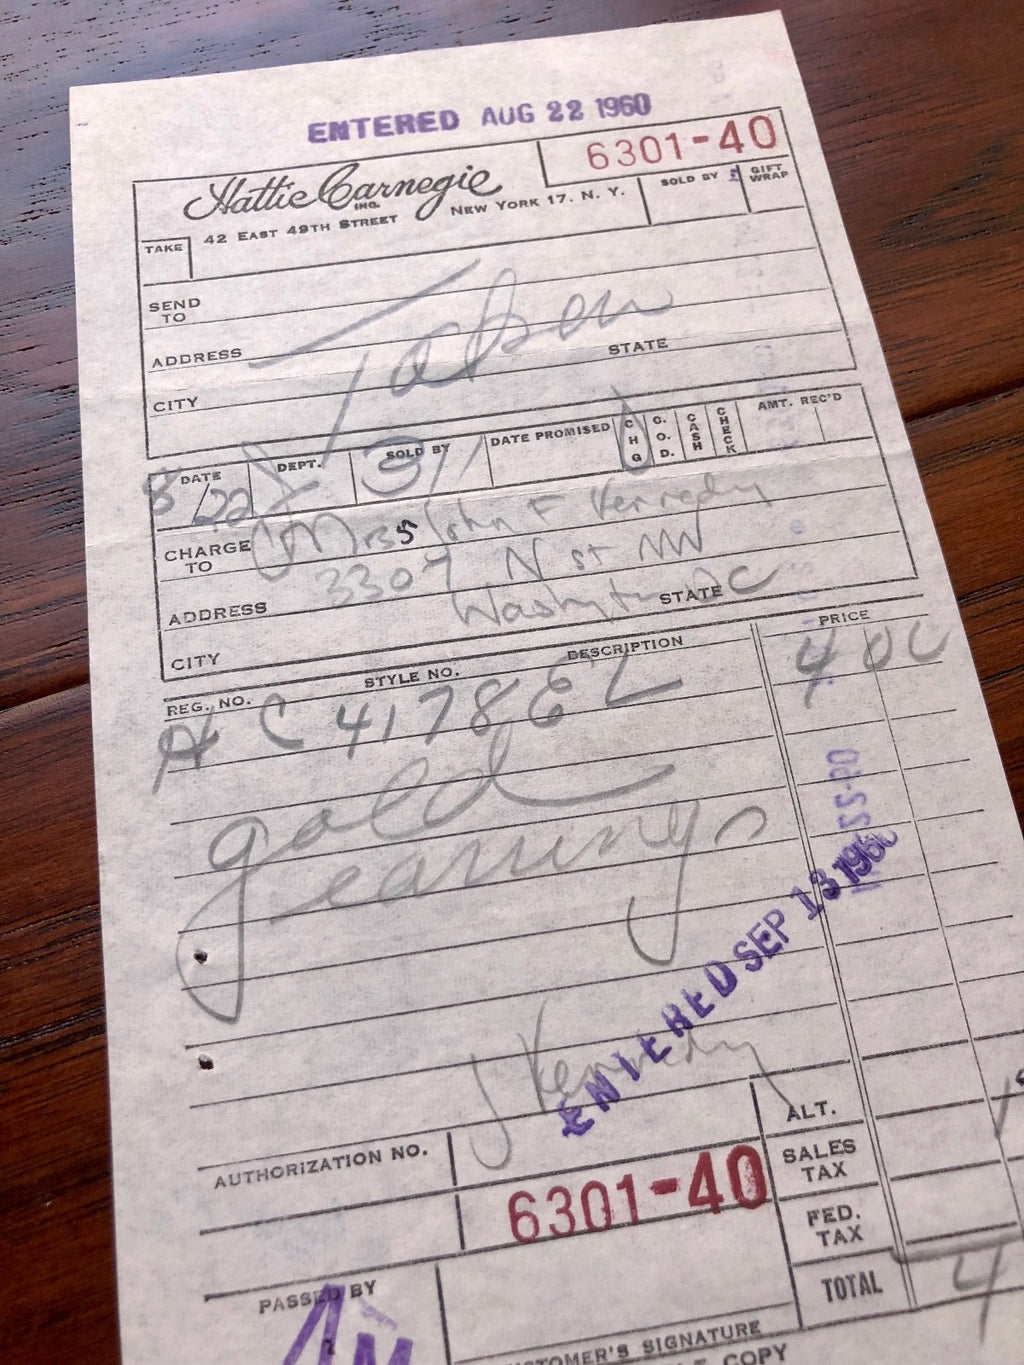 ENTERED AUG 22 1960
6301-40
Hattie Carnegie
INC.
42 EAST 49TH STREET NEW YORK 17. N. Y.
SOLD BY
GIFT WRAP
TAKE
SEND TO
Taken
ADDRESS
STATE
CITY
DATE DEPT. SOLD BY DATE PROMISED CHG C.O.D. CASH CHECK AMT. REC'D
8/22
CHARGE TO Mrs John F Kennedy
ADDRESS 3307 N st NW
Washington DC
STATE
CITY
REG. NO. STYLE NO. DESCRIPTION PRICE
C 4178 EL 4 00
gold
earrings
ENTERED SEP 13 1960
J Kennedy
AUTHORIZATION NO.
ALT.
SALES TAX
6301-40
FED. TAX
PASSED BY
TOTAL 4
CUSTOMER'S SIGNATURE
COPY